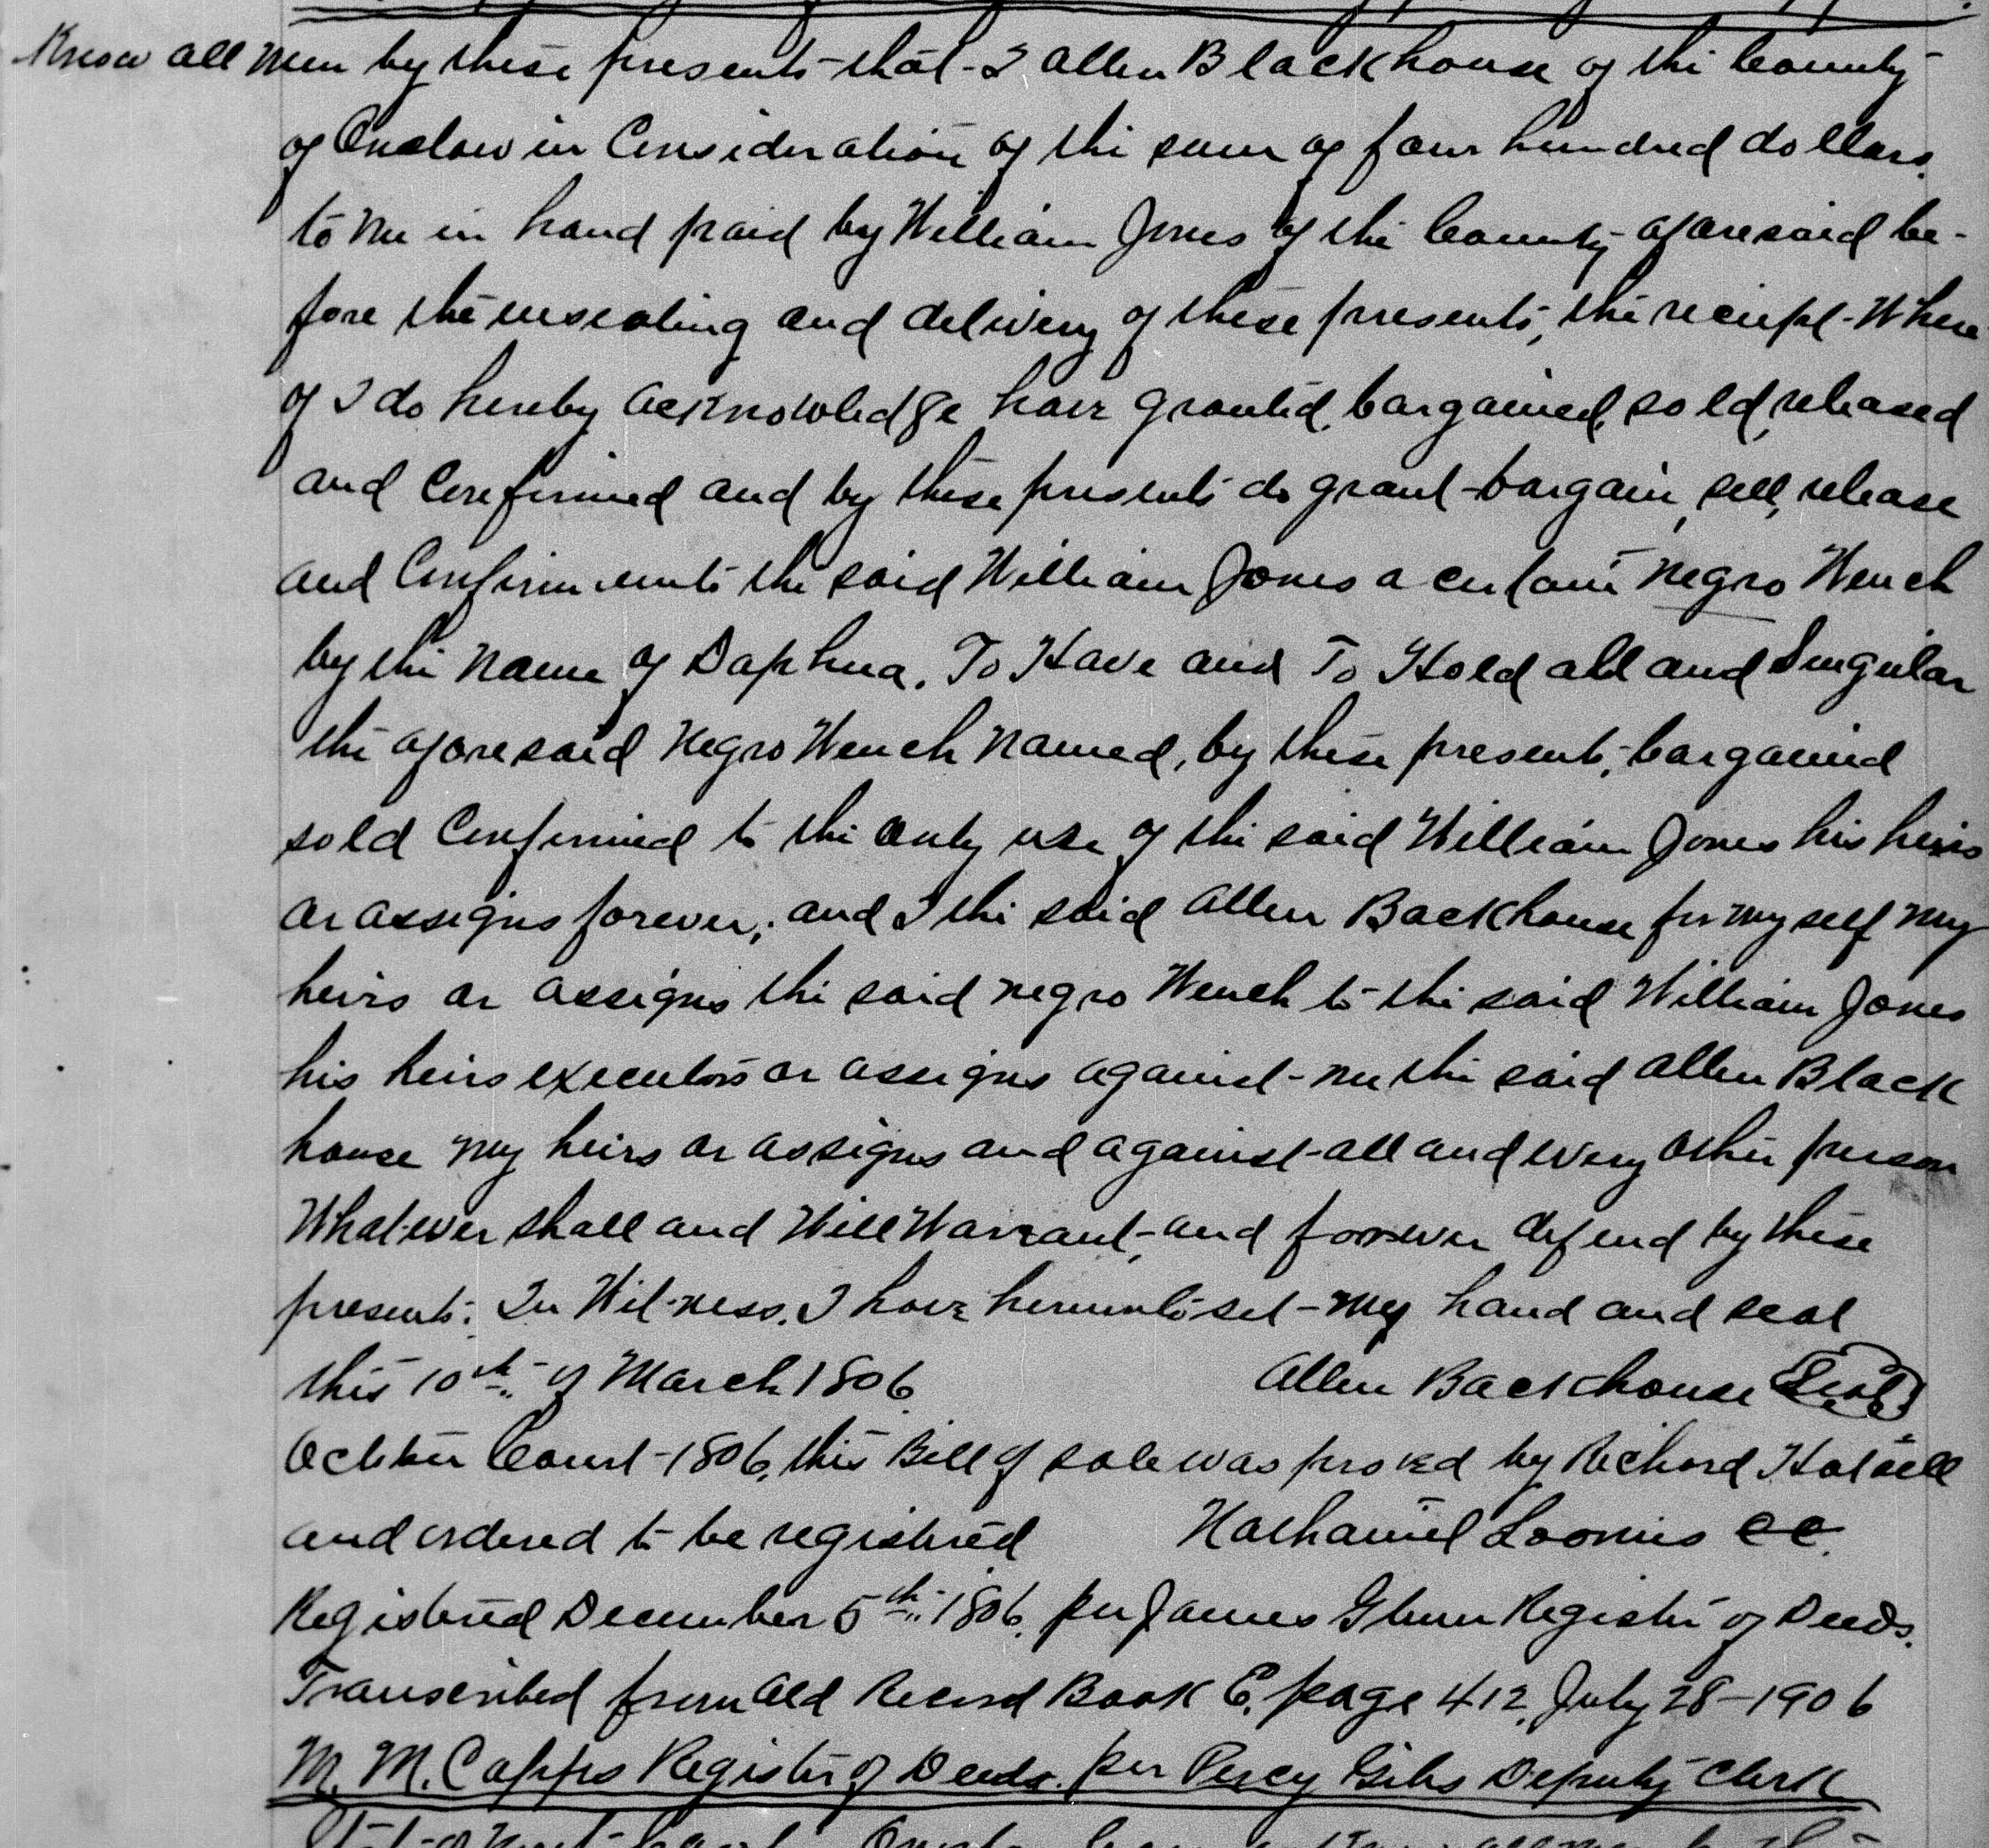 Know all men by these presents that I Allen Blackhouse of the County
of Onslow in Consideration of the sum of four hundred dollars,
to me in hand paid by William Jones of the County aforesaid be-
fore the ensealing and delivery of these presents, the receipt Where
of I do hereby acknowledge have granted, bargained, sold, released
and Confirmed and by these presents do grant bargain, sell, release
and Confirm unto the said William Jones a certain negro Wench
by the name of Daphna. To Have and To Hold all and Singular
the aforesaid negro Wench named, by these presents, bargained
sold Confirmed to the only use of the said William Jones his heirs
or assigns forever; and I the said Allen Backhouse for myself my
heirs or assigns the said negro Wench to the said William Jones
his heirs executors or assigns against me the said Allen Black
house my heirs or assigns and against all and every other person
Whatever shall and Will Warrant, and forever defend by these
presents. In Witness. I have hereunto set my hand and seal
this 10th of March 1806. Allen Backhouse (Seal)
October Court 1806, this Bill of sale was proved by Richard Hatsell
and ordered to be registered Nathaniel Loomis CC.
Registered December 5th 1806. per James Glenn Register of Deeds.
Transcribed from Old Record Book E, page 412, July 28-1906
M. M. Capps Register of Deeds. per Percy Deputy Clerk